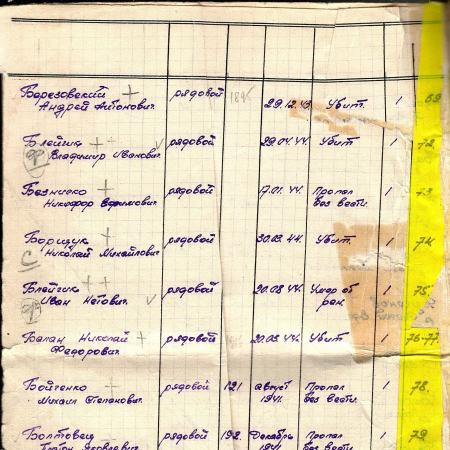 Березовский рядовой 1895 29.12.43 Убит. 1 69
Андрей Антонович
Блейша рядовой 29.04.44. Убит 1 72.
Владимир Иванович
Безниско рядовой 17.01.44. Пропал 1 73
Никифор Ефимович без вести.
Борищук рядовой 30.03.44. Убит. 1 74
Николай Михайлович
С
Блейчик рядовой 20.08.44. Умер от 1 75.
Иван ран.
Балан Николай рядовой 20.03.44. Убит 1 76-77.
Федорович
Бойченко рядовой 121 август Пропал 1 78.
Михаил Степанович 1941. без вести.
Болтовец рядовой 192. Декабрь Пропал 1 79
Яковлевич 1941 без вести